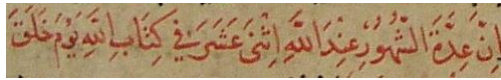 اِنَّ عِدَّةَ الشُّهُورِ عِنْدَ اللَّهِ اثْنَى عَشَرَ فِي كِتَابِ اللَّهِ يَوْمَ خَلَقَ